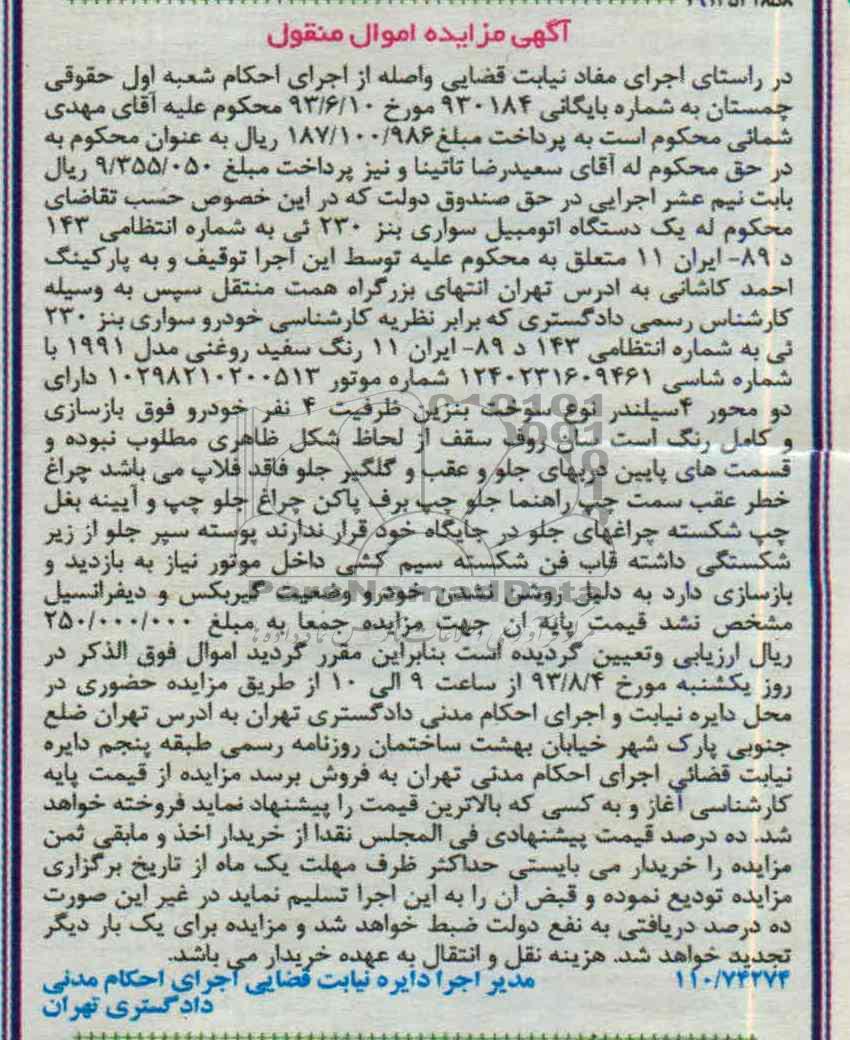 آگهی مزایده اموال منقول
در راستای اجرای مفاد نیابت قضایی واصله از اجرای احکام شعبه اول حقوقی
چمستان به شماره بایگانی ۹۳۰۱۸۴ مورخ ۹۳/۶/۱۰ محکوم علیه آقای مهدی
شمائی محکوم است به پرداخت مبلغ ۱۸۷/۱۰۰/۹۸۶ ریال به عنوان محکوم به
در حق محکوم له آقای سعیدرضا تاتینا و نیز پرداخت مبلغ ۹/۳۵۵/۰۵۰ ریال
بابت نیم عشر اجرایی در حق صندوق دولت که در این خصوص حسب تقاضای
محکوم له یک دستگاه اتومبیل سواری بنز ۲۳۰ ئی به شماره انتظامی ۱۴۳
د ۸۹- ایران ۱۱ متعلق به محکوم علیه توسط این اجرا توقیف و به پارکینگ
احمد کاشانی به ادرس تهران انتهای بزرگراه همت منتقل سپس به وسیله
کارشناس رسمی دادگستری که برابر نظریه کارشناسی خودرو سواری بنز ۲۳۰
ئی به شماره انتظامی ۱۴۳ د ۸۹- ایران ۱۱ رنگ سفید روغنی مدل ۱۹۹۱ با
شماره شاسی ۱۲۴۰۲۳۱۶۰۹۴۶۱ شماره موتور ۱۰۲۹۸۲۱۰۲۰۰۵۱۳ دارای
دو محور ۴سیلندر نوع سوخت بنزین ظرفیت ۴ نفر خودرو فوق بازسازی
و کامل رنگ است سان روف سقف از لحاظ شکل ظاهری مطلوب نبوده و
قسمت های پایین دربهای جلو و عقب و گلگیر جلو فاقد فلاپ می باشد چراغ
خطر عقب سمت چپ راهنما جلو چپ برف پاکن چراغ جلو چپ و آیینه بغل
چپ شکسته چراغهای جلو در جایگاه خود قرار ندارند پوسته سپر جلو از زیر
شکستگی داشته قاب فن شکسته سیم کشی داخل موتور نیاز به بازدید و
بازسازی دارد به دلیل روشن نشدن خودرو وضعیت گیربکس و دیفرانسیل
مشخص نشد قیمت پایه ان جهت مزایده جمعا به مبلغ ۲۵۰/۰۰۰/۰۰۰
ریال ارزیابی وتعیین گردیده است بنابراین مقرر گردید اموال فوق الذکر در
روز یکشنبه مورخ ۹۳/۸/۴ از ساعت ۹ الی ۱۰ از طریق مزایده حضوری در
محل دایره نیابت و اجرای احکام مدنی دادگستری تهران به ادرس تهران ضلع
جنوبی پارک شهر خیابان بهشت ساختمان روزنامه رسمی طبقه پنجم دایره
نیابت قضائی اجرای احکام مدنی تهران به فروش برسد مزایده از قیمت پایه
کارشناسی آغاز و به کسی که بالاترین قیمت را پیشنهاد نماید فروخته خواهد
شد. ده درصد قیمت پیشنهادی فی المجلس نقدا از خریدار اخذ و مابقی ثمن
مزایده را خریدار می بایستی حداکثر ظرف مهلت یک ماه از تاریخ برگزاری
مزایده تودیع نموده و قبض ان را به این اجرا تسلیم نماید در غیر این صورت
ده درصد دریافتی به نفع دولت ضبط خواهد شد و مزایده برای یک بار دیگر
تجدید خواهد شد. هزینه نقل و انتقال به عهده خریدار می باشد.
۱۱۰/۷۴۲۷۴ مدیر اجرا دایره نیابت قضایی اجرای احکام مدنی
دادگستری تهران
ParsNamadData